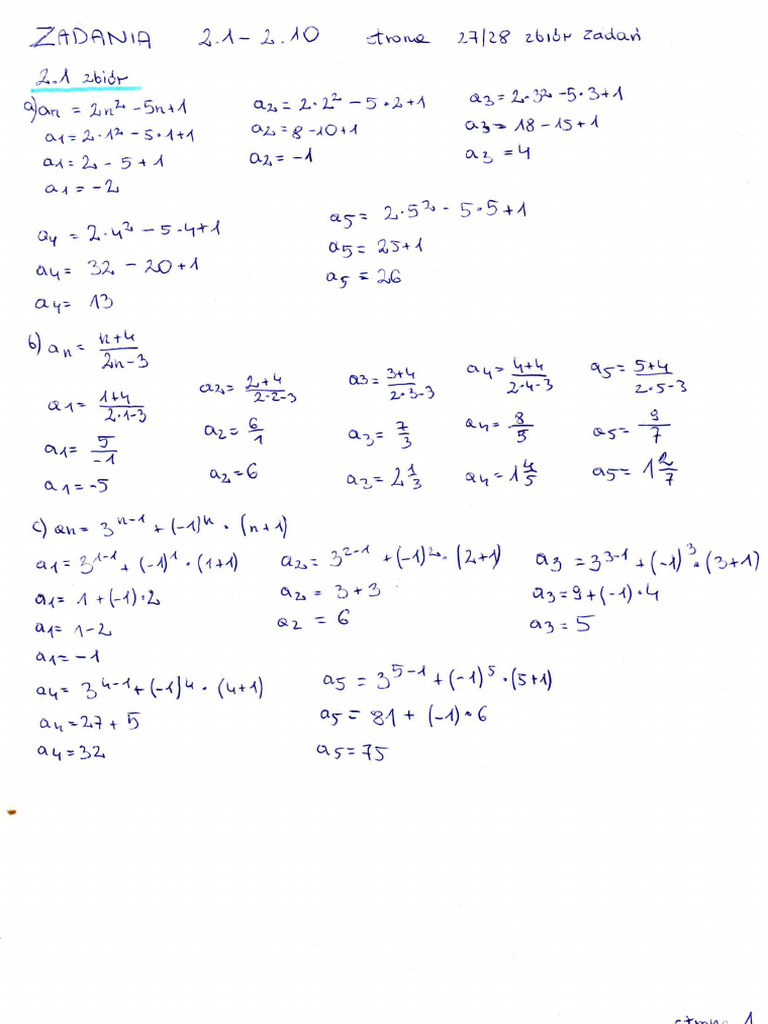 ZADANIA 2.1 - 2.10 strona 27/28 zbiór zadań
2.1 zbiór
a) an = 2n² - 5n + 1
a1 = 2·1² - 5·1 + 1
a1 = 2 - 5 + 1
a1 = -2
a2 = 2·2² - 5·2 + 1
a2 = 8 - 10 + 1
a2 = -1
a3 = 2·3² - 5·3 + 1
a3 = 18 - 15 + 1
a3 = 4
a4 = 2·4² - 5·4 + 1
a4 = 32 - 20 + 1
a4 = 13
a5 = 2·5² - 5·5 + 1
a5 = 25 + 1
a5 = 26
b) an = (n+4)/(2n-3)
a1 = (1+4)/(2·1-3)
a1 = 5/-1
a1 = -5
a2 = (2+4)/(2·2-3)
a2 = 6/1
a2 = 6
a3 = (3+4)/(2·3-3)
a3 = 7/3
a3 = 2 1/3
a4 = (4+4)/(2·4-3)
a4 = 8/5
a4 = 1 4/5
a5 = (5+4)/(2·5-3)
a5 = 9/7
a5 = 1 2/7
c) an = 3^(n-1) + (-1)^n · (n+1)
a1 = 3^(1-1) + (-1)^1 · (1+1)
a1 = 1 + (-1)·2
a1 = 1 - 2
a1 = -1
a2 = 3^(2-1) + (-1)² · (2+1)
a2 = 3 + 3
a2 = 6
a3 = 3^(3-1) + (-1)³ · (3+1)
a3 = 9 + (-1)·4
a3 = 5
a4 = 3^(4-1) + (-1)^4 · (4+1)
a4 = 27 + 5
a4 = 32
a5 = 3^(5-1) + (-1)^5 · (5+1)
a5 = 81 + (-1)·6
a5 = 75
strona 1